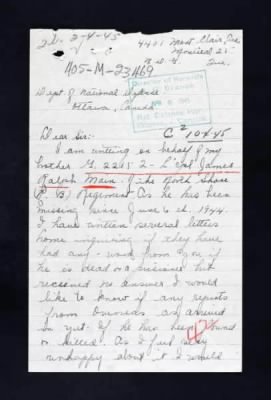 2-4-45
4401 Mont Clair Ave
Montreal 28
N.D.G. Que.
405-M-23469
Dept of National Defence
Ottawa, Canada
Director of Records
Dear Sir:-
I am writing on behalf of my
brother G. 22452 - L/Cpl James
Ralph Main of the North Shore
(N.B) Regiment. As he has been
missing since June 6th. 1944.
I have written several letters
home inquiring if they have
had any word from you if
he is dead or a prisoner but
received no answer I would
like to know if any reports
from overseas as arrived
as yet. If he has been found
or killed. As I feel very
unhappy about it I would